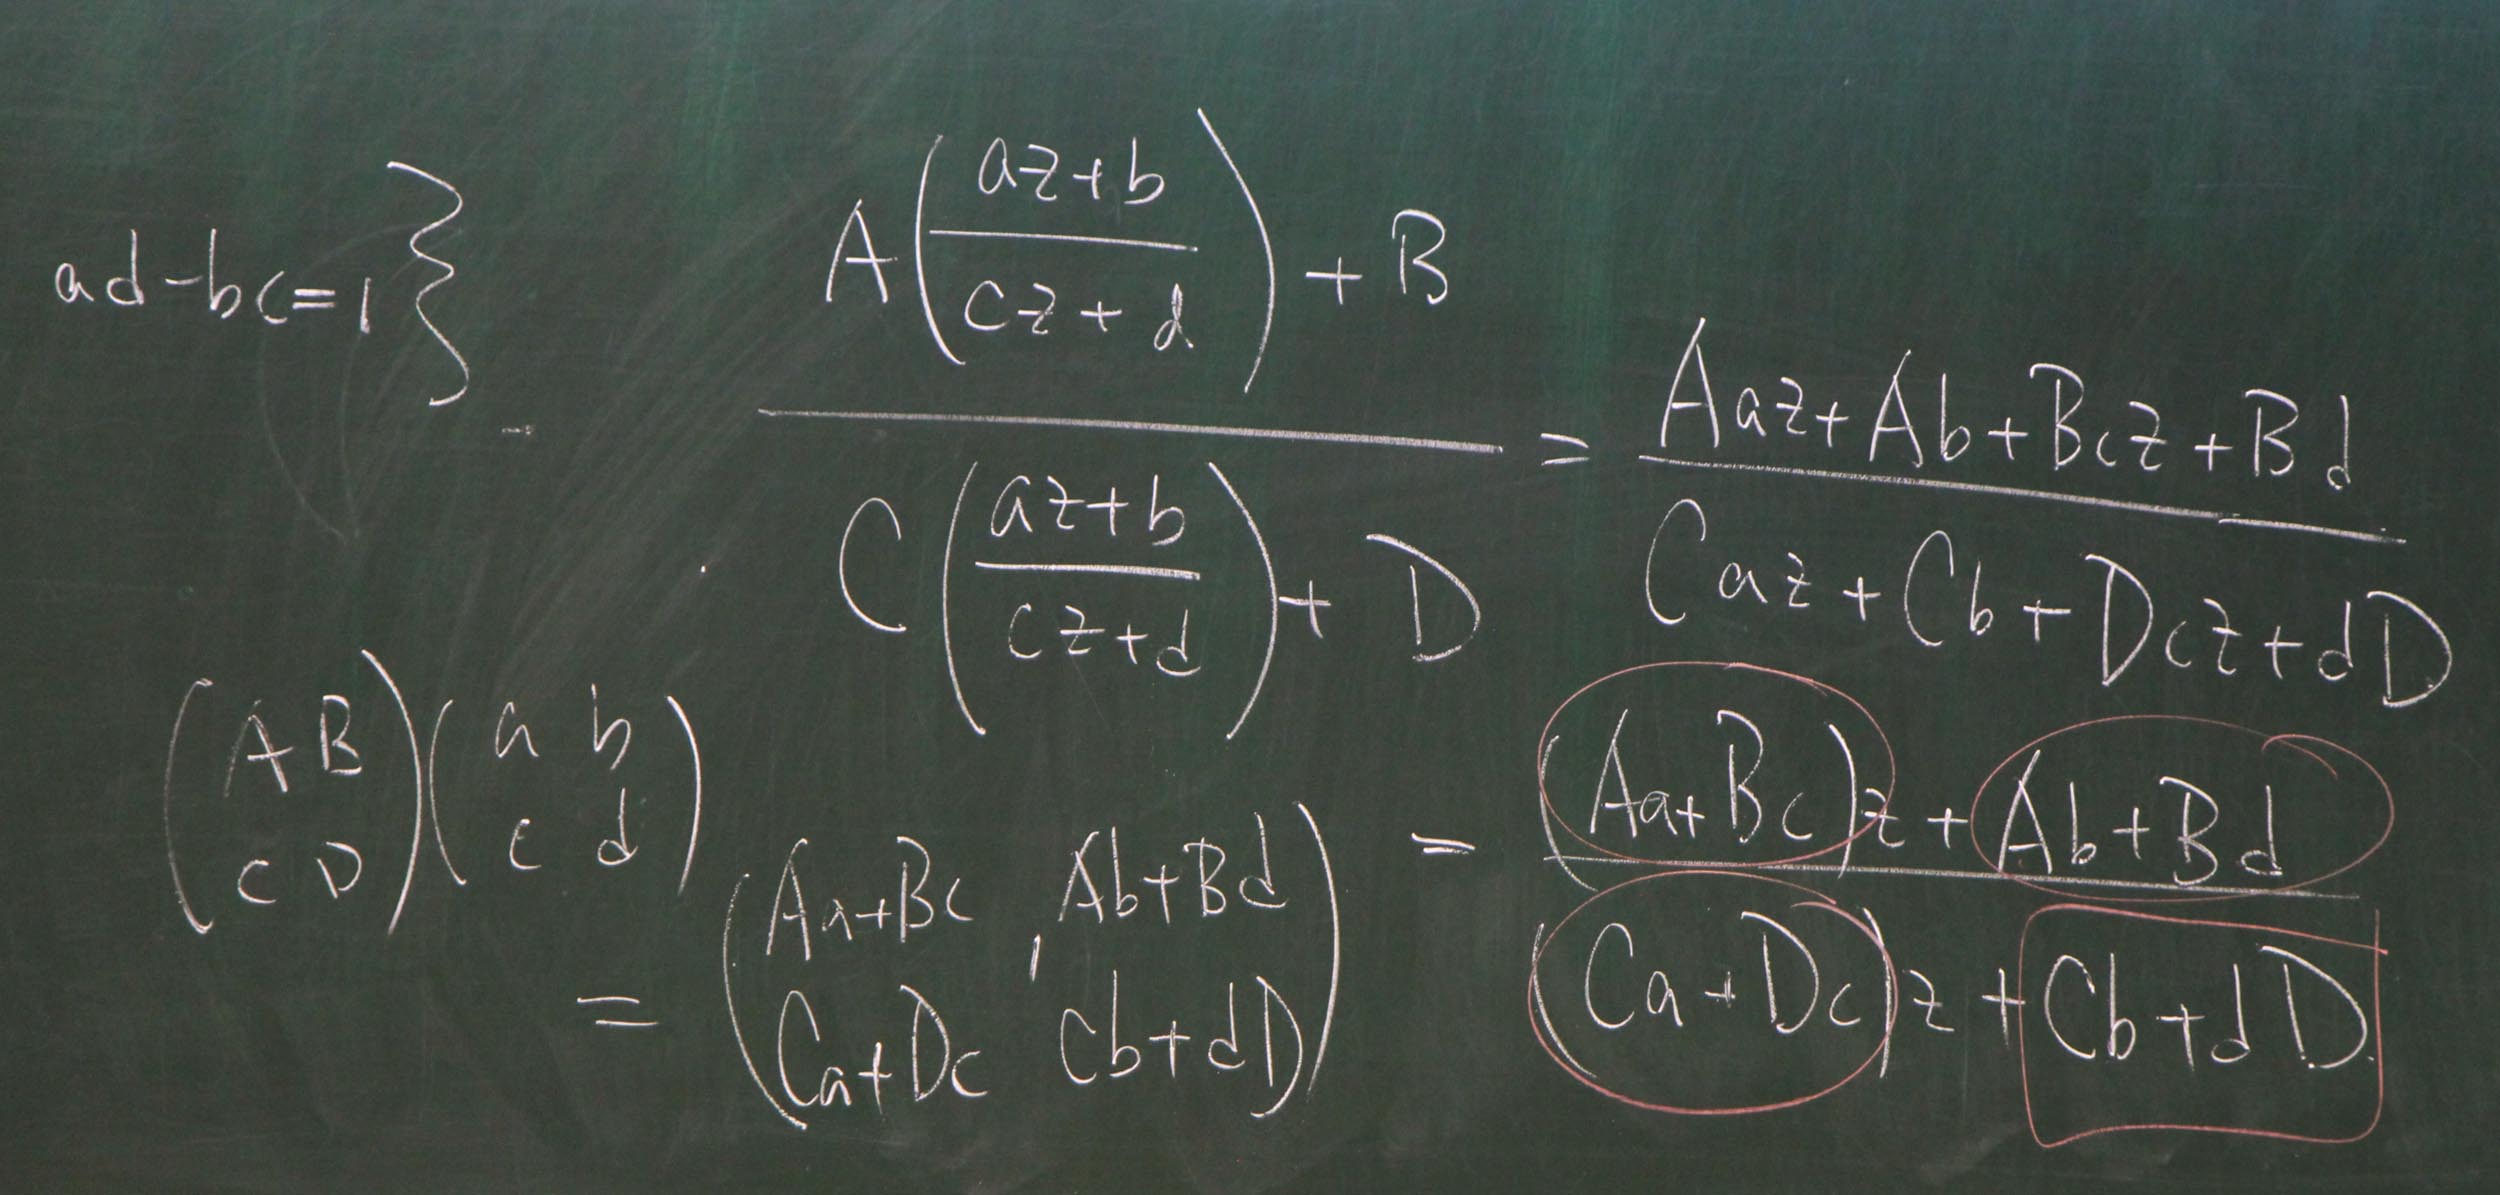 ad-bc=1}
A((az+b)/(cz+d)) + B
/
C((az+b)/(cz+d)) + D
= (Aaz+Ab+Bcz+Bd)/(Caz+Cb+Dcz+dD)
= ((Aa+Bc)z+Ab+Bd)/((Ca+Dc)z+Cb+dD)
(A B
C D)(a b
c d)
= (Aa+Bc, Ab+Bd
Ca+Dc, Cb+dD)